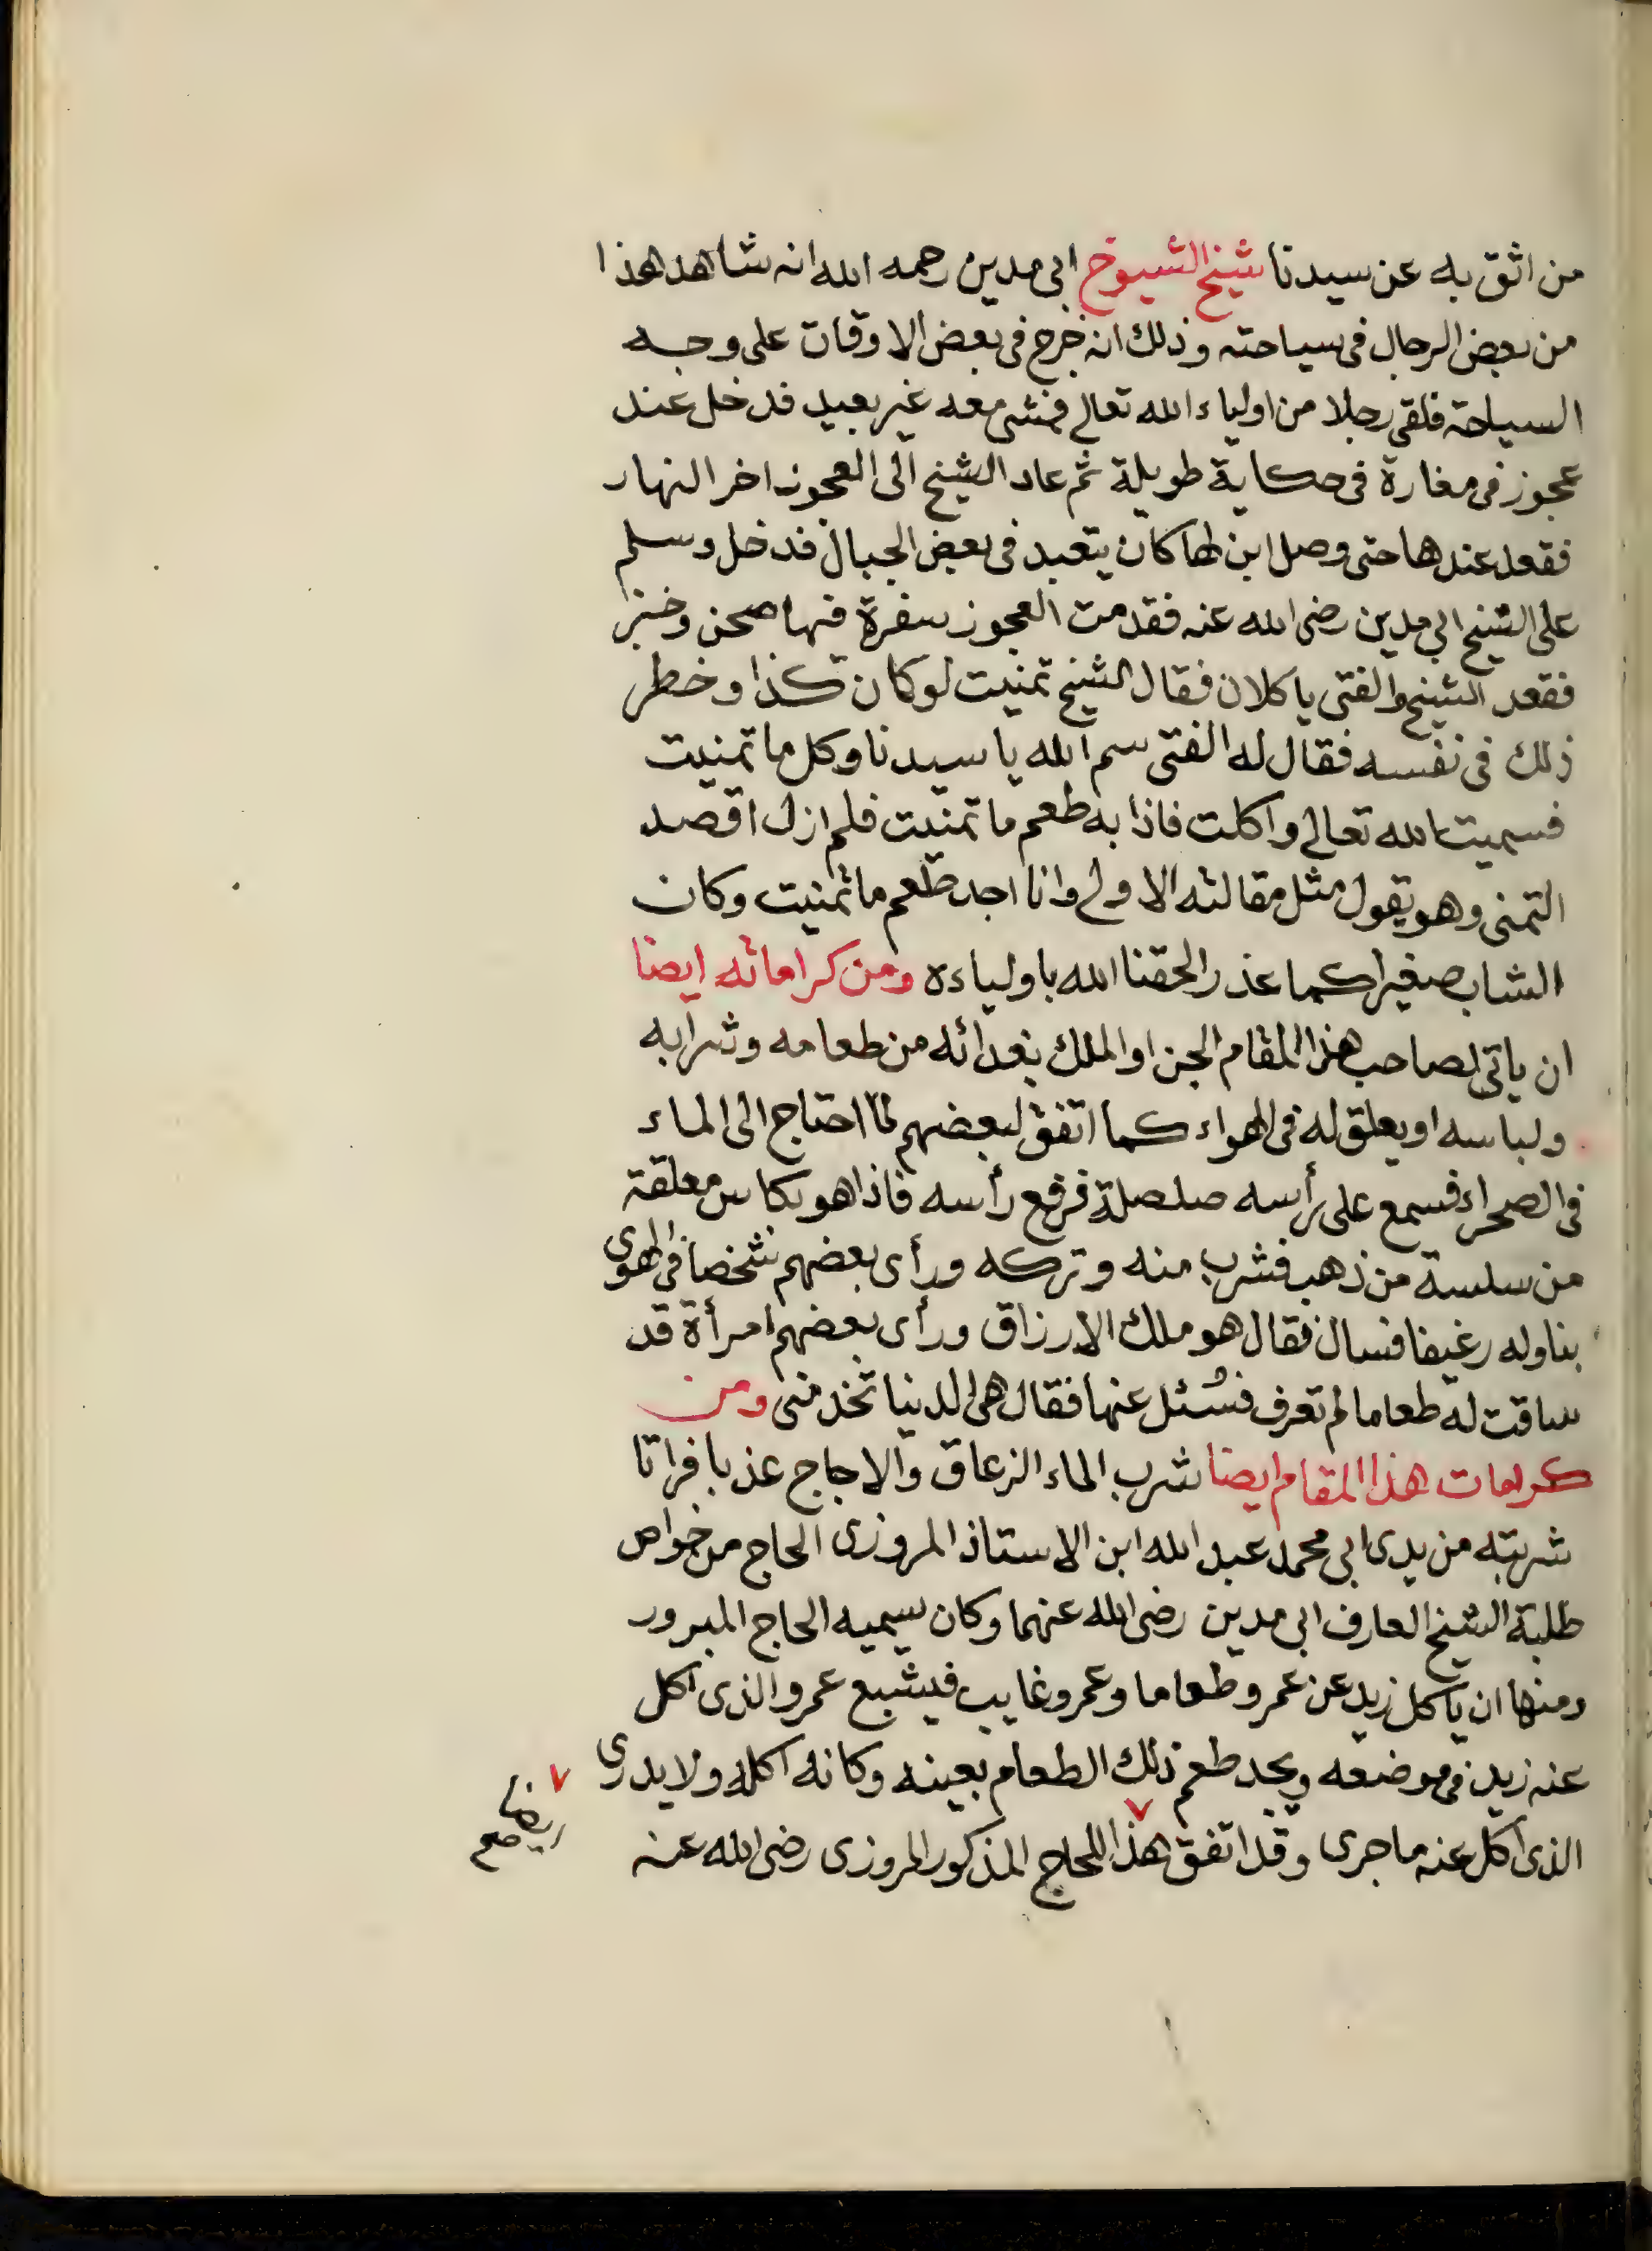 من اثق به عن سيدنا شيخ الشيوخ ابى مدين رحمه الله انه شاهد هذا
من بعض الرجال فى سياحته وذلك انه خرج فى بعض الاوقات على وجه
السياحة فلقى رجلا من اولياء الله تعالى فمشى معه غير بعيد فدخل عند
عجوز فى مغارة فى حكاية طويلة ثم عاد الشيخ الى العجوز اخر النهار
فقعد عندها حتى وصل ابن لها كان يتعبد فى بعض الجبال فدخل وسلم
على الشيخ ابى مدين رضى الله عنه فقدمت العجوز سفرة فيها صحن وخبز
فقعد الشيخ والفتى ياكلان فقال الشيخ تمنيت لو كان كذا وخطر
ذلك فى نفسه فقال له الفتى سم الله يا سيدنا وكل ما تمنيت
فسميت الله تعالى واكلت فاذا به طعم ما تمنيت فلم ازل اقصد
التمنى وهو يقول مثل مقالته الاولى وانا اجد طعم ما تمنيت وكان
الشاب صغيرا كما عذر الحقنا الله باولياءه ومن كراماته ايضا
ان ياتى لصاحب هذا المقام الجن او الملك بغدائه من طعامه وشرابه
ولباسه او يعلق له فى الهواء كما اتفق لبعضهم لما احتاج الى الماء
فى الصحراء فسمع على رأسه صلصلة فرفع رأسه فاذا هو بكاس معلقة
من سلسة من ذهب فشرب منه وتركه ورأى بعضهم شخصا فى الهوى
يناوله رغيفا فسال فقال هو ملك الارزاق ورأى بعضهم امرأة قد
ساقت له طعاما لم تعرف فسُئل عنها فقال هى الدنيا تخدمنى ومن
كرامات هذا المقام ايضا شرب الماء الزعاق والاجاج عذبا فراتا
شربته من يدى ابى محمد عبد الله ابن الاستاذ المروزى الحاج من خواص
طلبة الشيخ العارف ابى مدين رضى الله عنهما وكان يسميه الحاج المبرور
ومنها ان ياكل زيد عن عمرو طعاما وعمرو غايب فيشبع عمرو الذى اكل
عنه زيد فى موضعه ويجد طعم ذلك الطعام بعينه وكانه اكله ولا يدرى
الذى اكل عنه ما جرى وقد اتفق هذا للحاج المذكور المروزى رضى الله عنه
ايضا صح